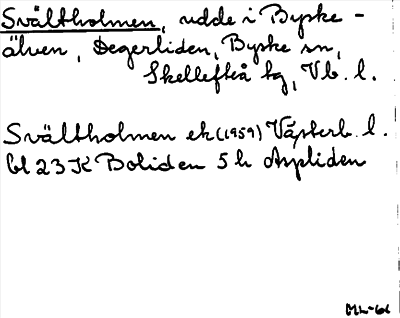 Svältholmen, udde i Byske-
älven, Degerliden, Byske sn,
Skellefteå kg, Vb. l.
Svältholmen ek (1959) Västerb. l.
bl 23 K Boliden 5 h Aspliden
ML-61